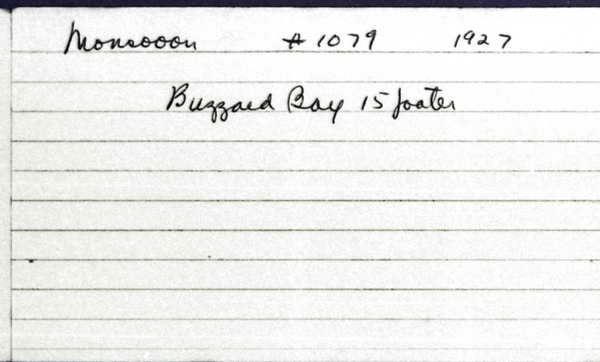 Monsoon #1079 1927
Buzzard Bay 15 footer